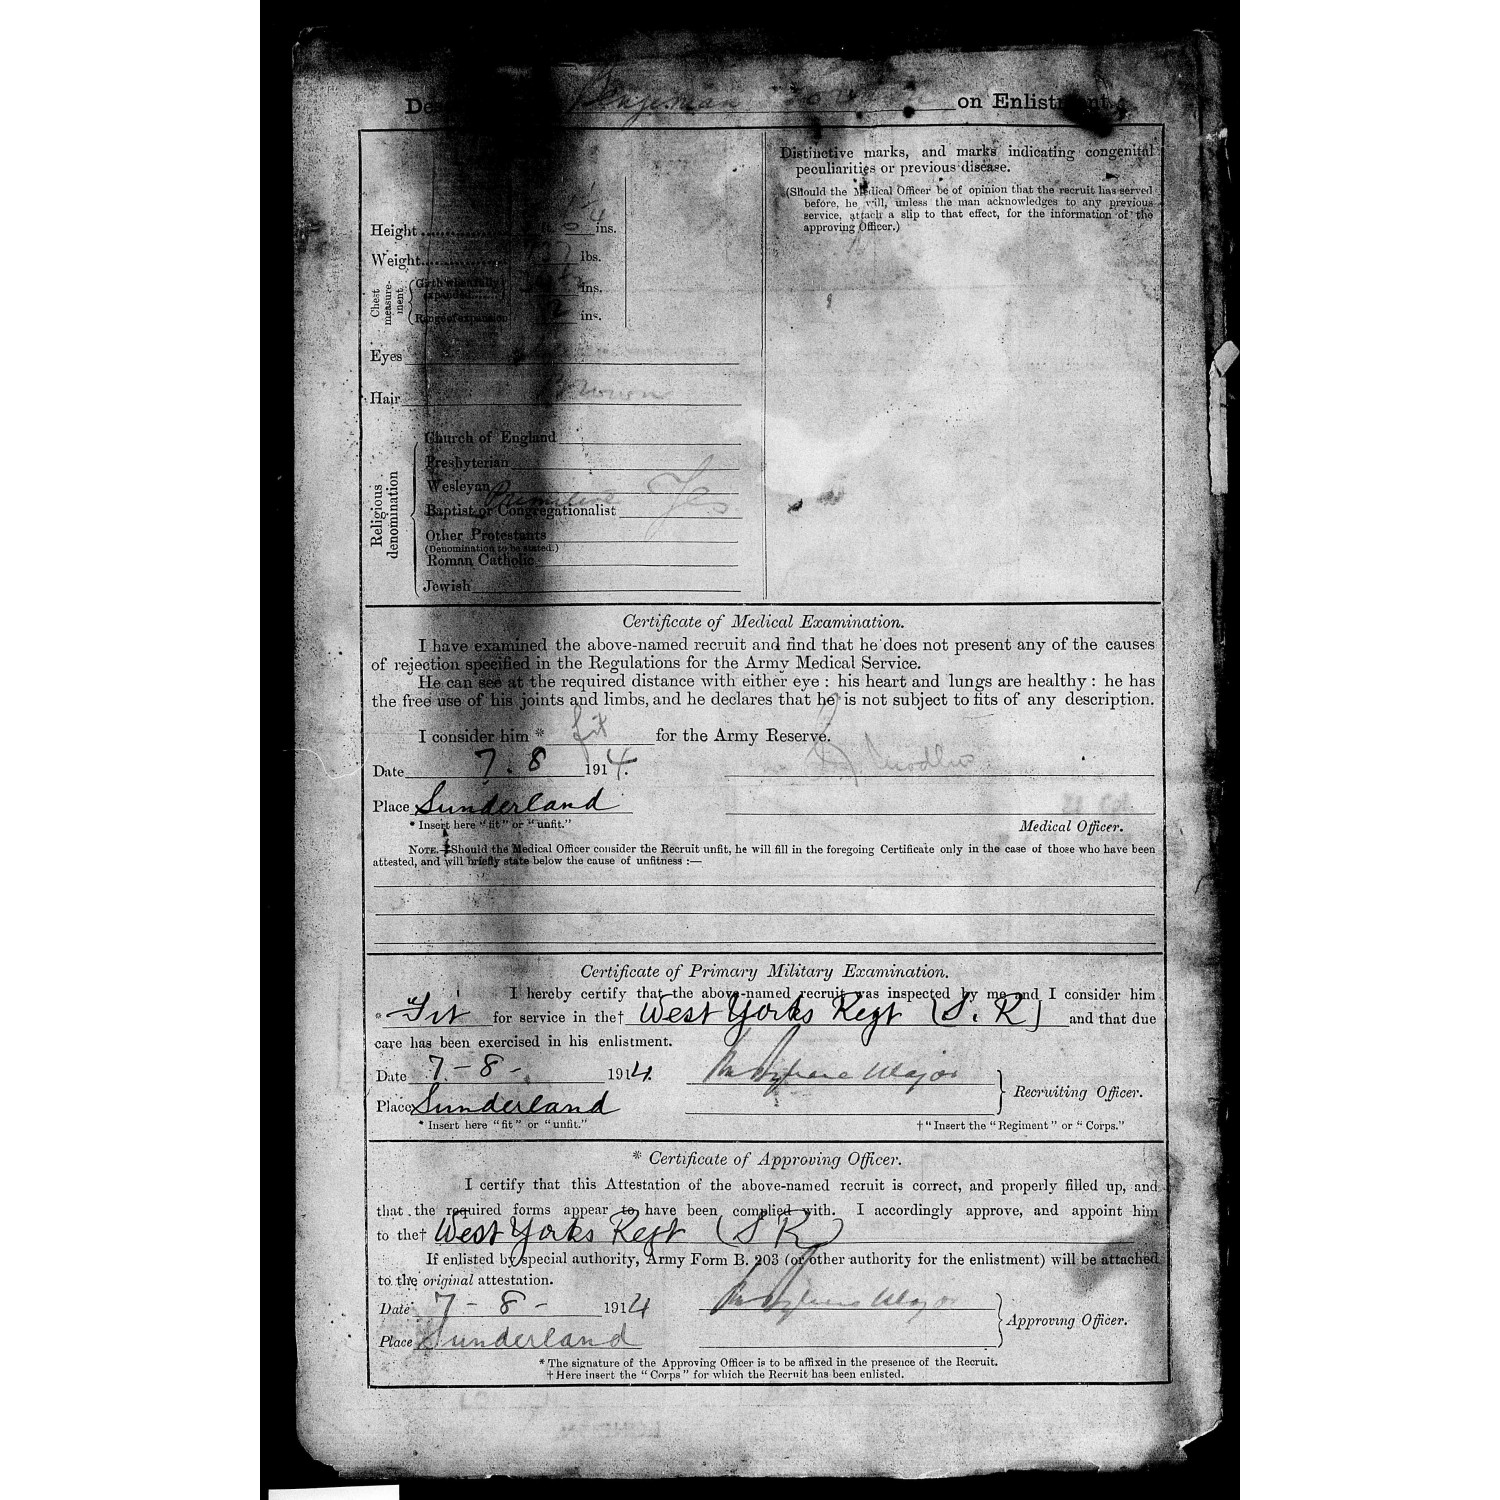 Benjeman on Enlistment.
Distinctive marks, and marks indicating congenital
peculiarities or previous disease.
(Should the Medical Officer be of opinion that the recruit has served
before, he will, unless the man acknowledges to any previous
service, attach a slip to that effect, for the information of the
approving Officer.)
Height ins.
Weight lbs.
Chest measure-ment. Girth when fully expanded ins.
Range of expansion 2 ins.
Eyes
Hair Brown
Religious denomination
Church of England
Presbyterian
Wesleyan
Primitive Yes
Baptist or Congregationalist
Other Protestants
(Denomination to be stated.)
Roman Catholic
Jewish
Certificate of Medical Examination.
I have examined the above-named recruit and find that he does not present any of the causes
of rejection specified in the Regulations for the Army Medical Service.
He can see at the required distance with either eye : his heart and lungs are healthy : he has
the free use of his joints and limbs, and he declares that he is not subject to fits of any description.
I consider him * fit for the Army Reserve.
Date 7. 8 1914.
Place Sunderland
* Insert here "fit" or "unfit."
Medical Officer.
NOTE.—Should the Medical Officer consider the Recruit unfit, he will fill in the foregoing Certificate only in the case of those who have been
attested, and will briefly state below the cause of unfitness :—
Certificate of Primary Military Examination.
I hereby certify that the above-named recruit was inspected by me and I consider him
* Fit for service in the† West Yorks Regt (S. R) and that due
care has been exercised in his enlistment.
Date 7 - 8 - 1914. Major
Recruiting Officer.
Place Sunderland
* Insert here "fit" or "unfit." † "Insert the "Regiment" or "Corps."
* Certificate of Approving Officer.
I certify that this Attestation of the above-named recruit is correct, and properly filled up, and
that the required forms appear to have been complied with. I accordingly approve, and appoint him
to the† West Yorks Regt (S R)
If enlisted by special authority, Army Form B. 203 (or other authority for the enlistment) will be attached
to the original attestation.
Date 7 - 8 - 1914 Major
Approving Officer.
Place Sunderland
* The signature of the Approving Officer is to be affixed in the presence of the Recruit.
† Here insert the "Corps" for which the Recruit has been enlisted.